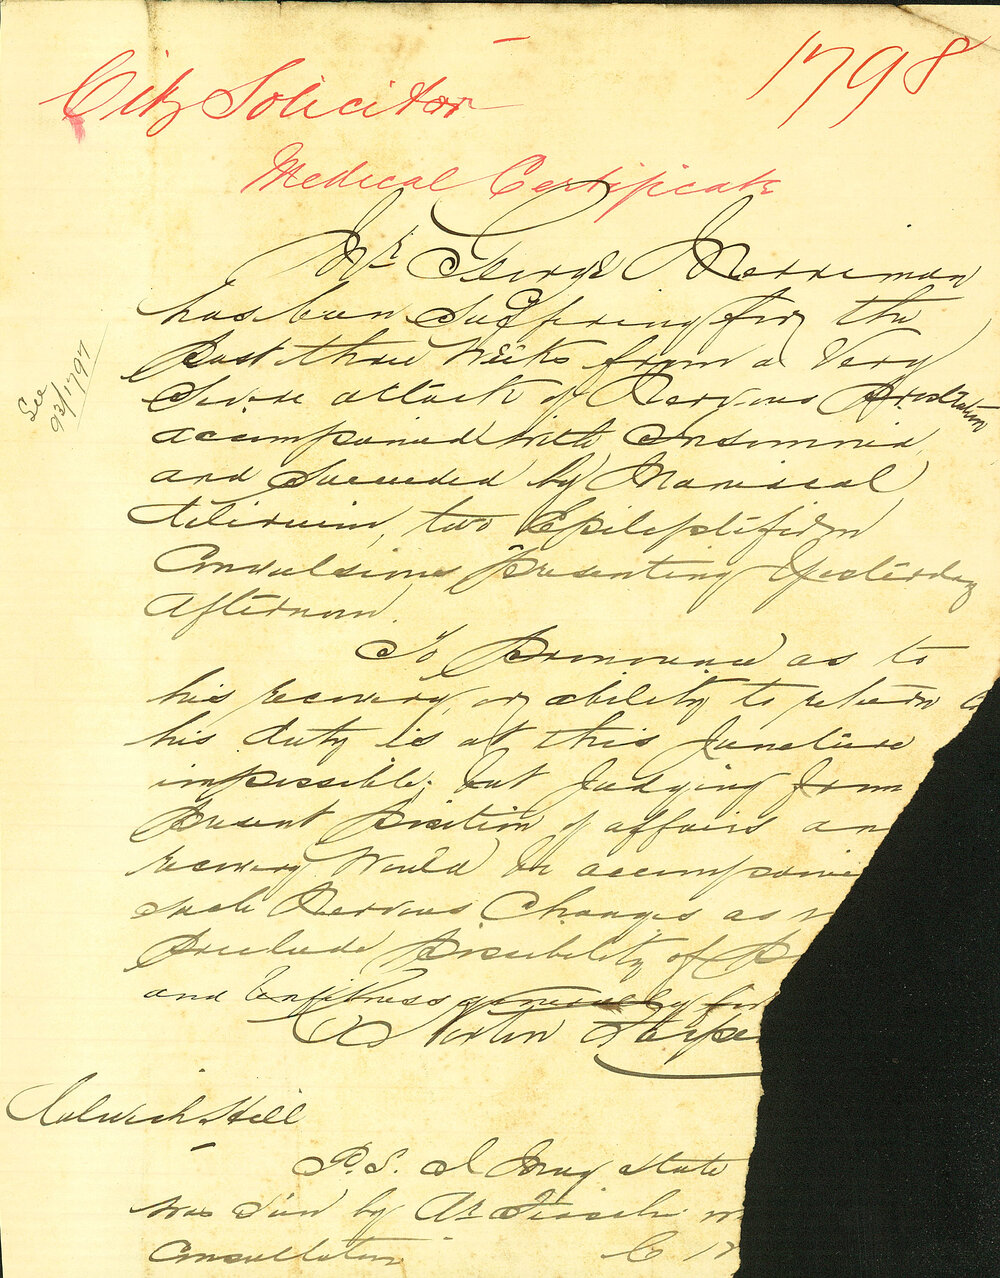 1798
City Solicitor
Medical Certificate
Mr George Merriman
has been Suffering for the
past three weeks from a Very
Severe attack of Nervous Prostration
accompanied with insomnia,
and Succeeded by Maniacal
delirium, two Epileptiform
Convulsions presenting Yesterday
Afternoon.
See
93/1797
To Pronounce as to
his recovery, or ability to return to
his duty is at this Juncture
impossible; but Judging from
Present Position of affairs an
recovery Would be accompanie
such Nervous Changes as
Preclude Possibility of
and Unfitness generally for
Norton
Hill
P.S. I may state
was Seen by Dr
Consultation